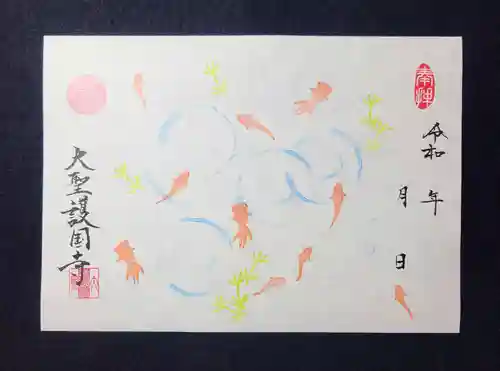 奉拝
令和 年
月 日
大聖護国寺